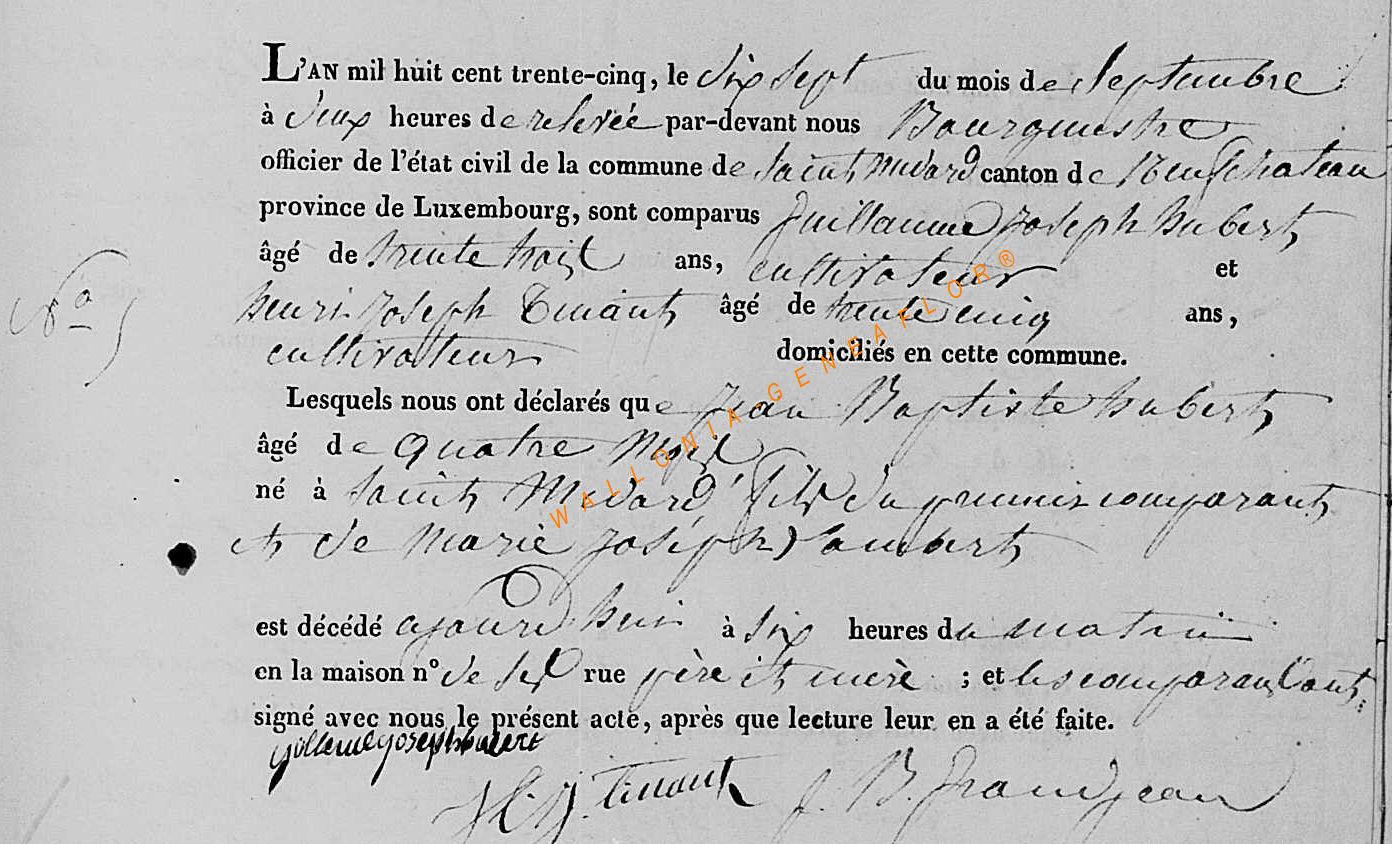 L'AN mil huit cent trente-cinq, le dix sept du mois de Septembre
à deux heures de relevée par-devant nous Bourgmestre
officier de l'état civil de la commune de Saint Medard canton de Neufchateau
province de Luxembourg, sont comparus Guillaume Joseph hubert
âgé de trente trois ans, cultivateur et
henri Joseph Tinant âgé de trente cinq ans,
N°
cultivateur domiciliés en cette commune.
Lesquels nous ont déclarés que Jean Baptiste hubert
âgé de quatre Mois
né à Saint Medard fils du premier comparant
et de Marie Joseph Lambert
est décédé ajourd'huis à six heures du matin
en la maison n° de ses rue père et mère ; et les comparans ont
signé avec nous le présent acte, après que lecture leur en a été faite.
H. J. Tinant J. B. Grandjean
WALLONIA-GENEAFLOR®